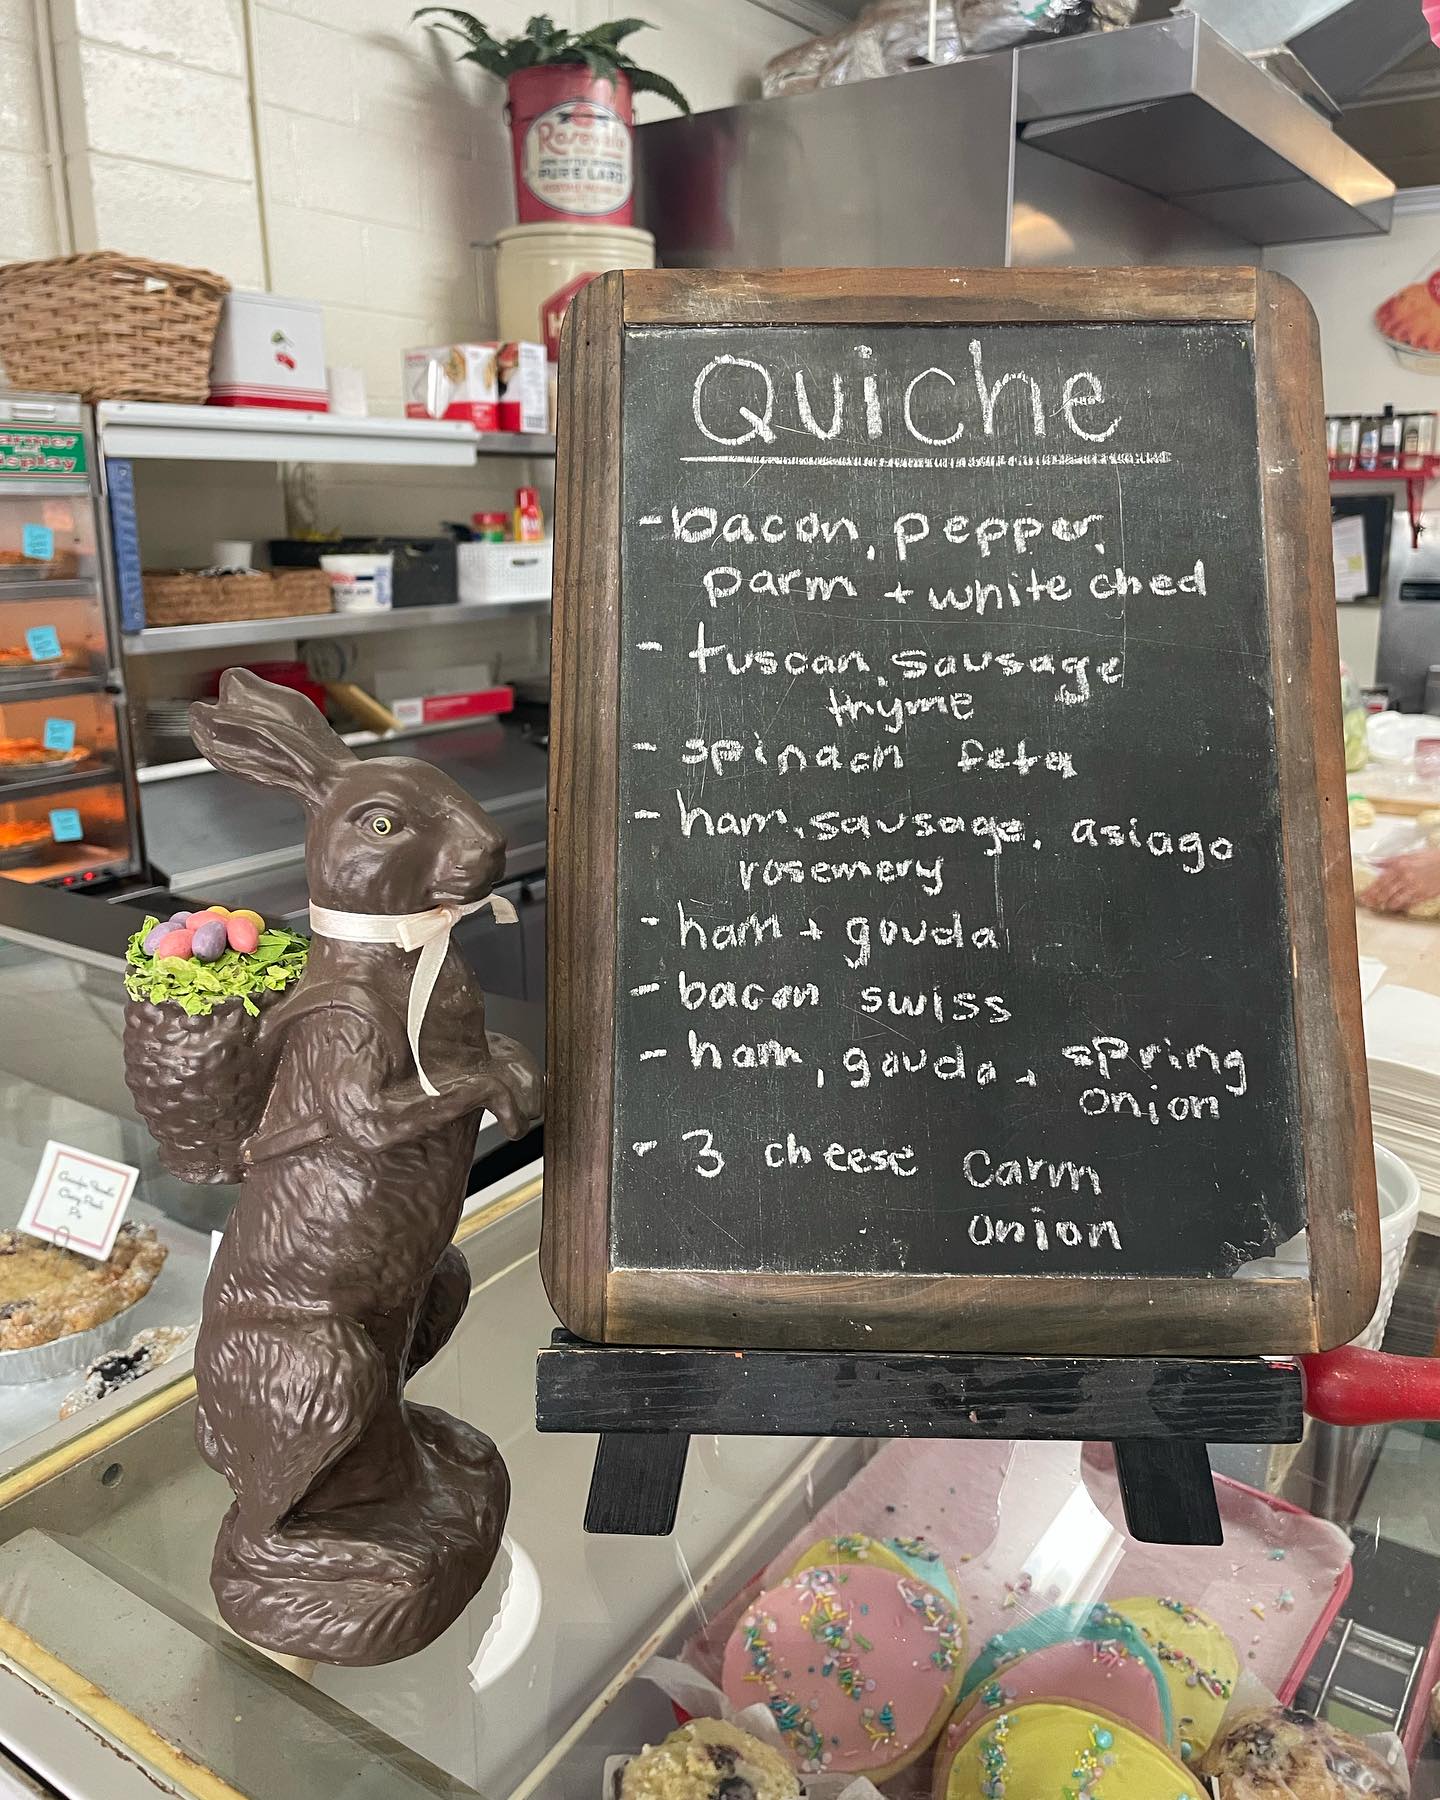 Roseville
PURE LARD
armer
isplay
Quiche
- bacon, pepper,
parm + white ched
- tuscan, sausage
thyme
- spinach feta
- ham, sausage, asiago
rosemery
- ham + gouda
- bacon swiss
- ham, gouda, + spring
onion
- 3 cheese Carm
onion